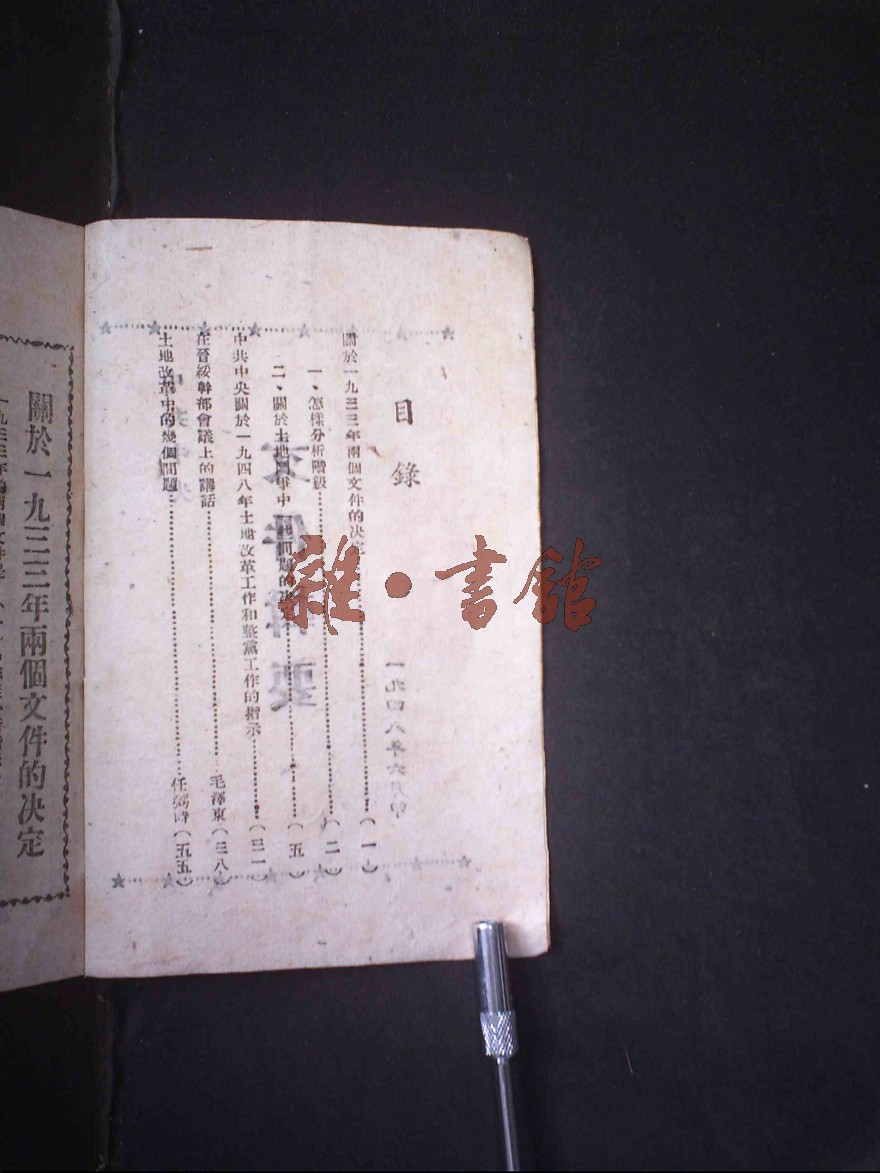 目錄
關於一九三三年兩個文件的决定……(一)
一、怎樣分析階級……(二)
二、關於土地鬥爭中一些問題的决定……(五)
中共中央關於一九四八年土地改革工作和整黨工作的指示……(三一)
在晉綏幹部會議上的講話……毛澤東(三八)
土地改革中的幾個問題……任弼時(五五)
一九四八年六月印
關於一九三三年兩個文件的决定
雜·書館